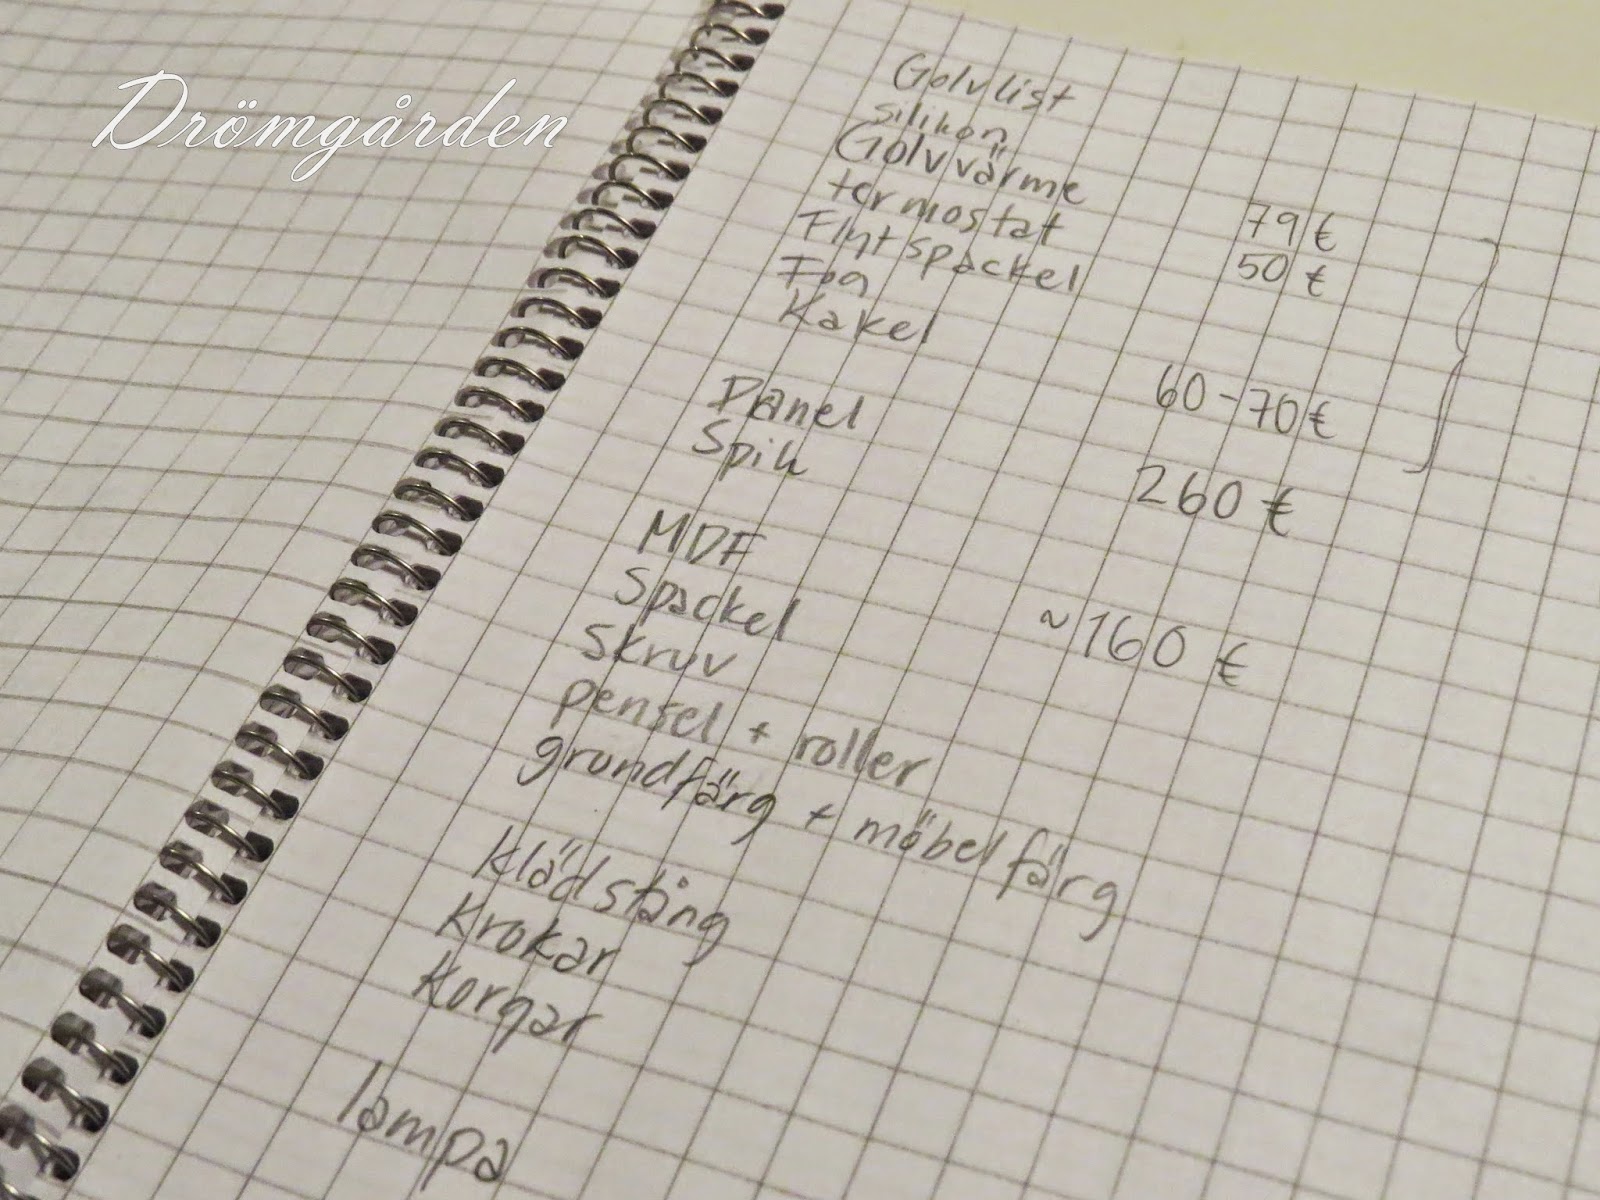 Drömgården
Golvlist
silikon
Golvvärme 79 €
termostat 50 €
Flytspackel
Fog
Kakel 60-70 €
Panel 260 €
Spik
MDF ~160 €
Spackel
Skruv
pensel + roller
grundfärg + möbelfärg
Klädstång
Krokar
Korgar
lampa